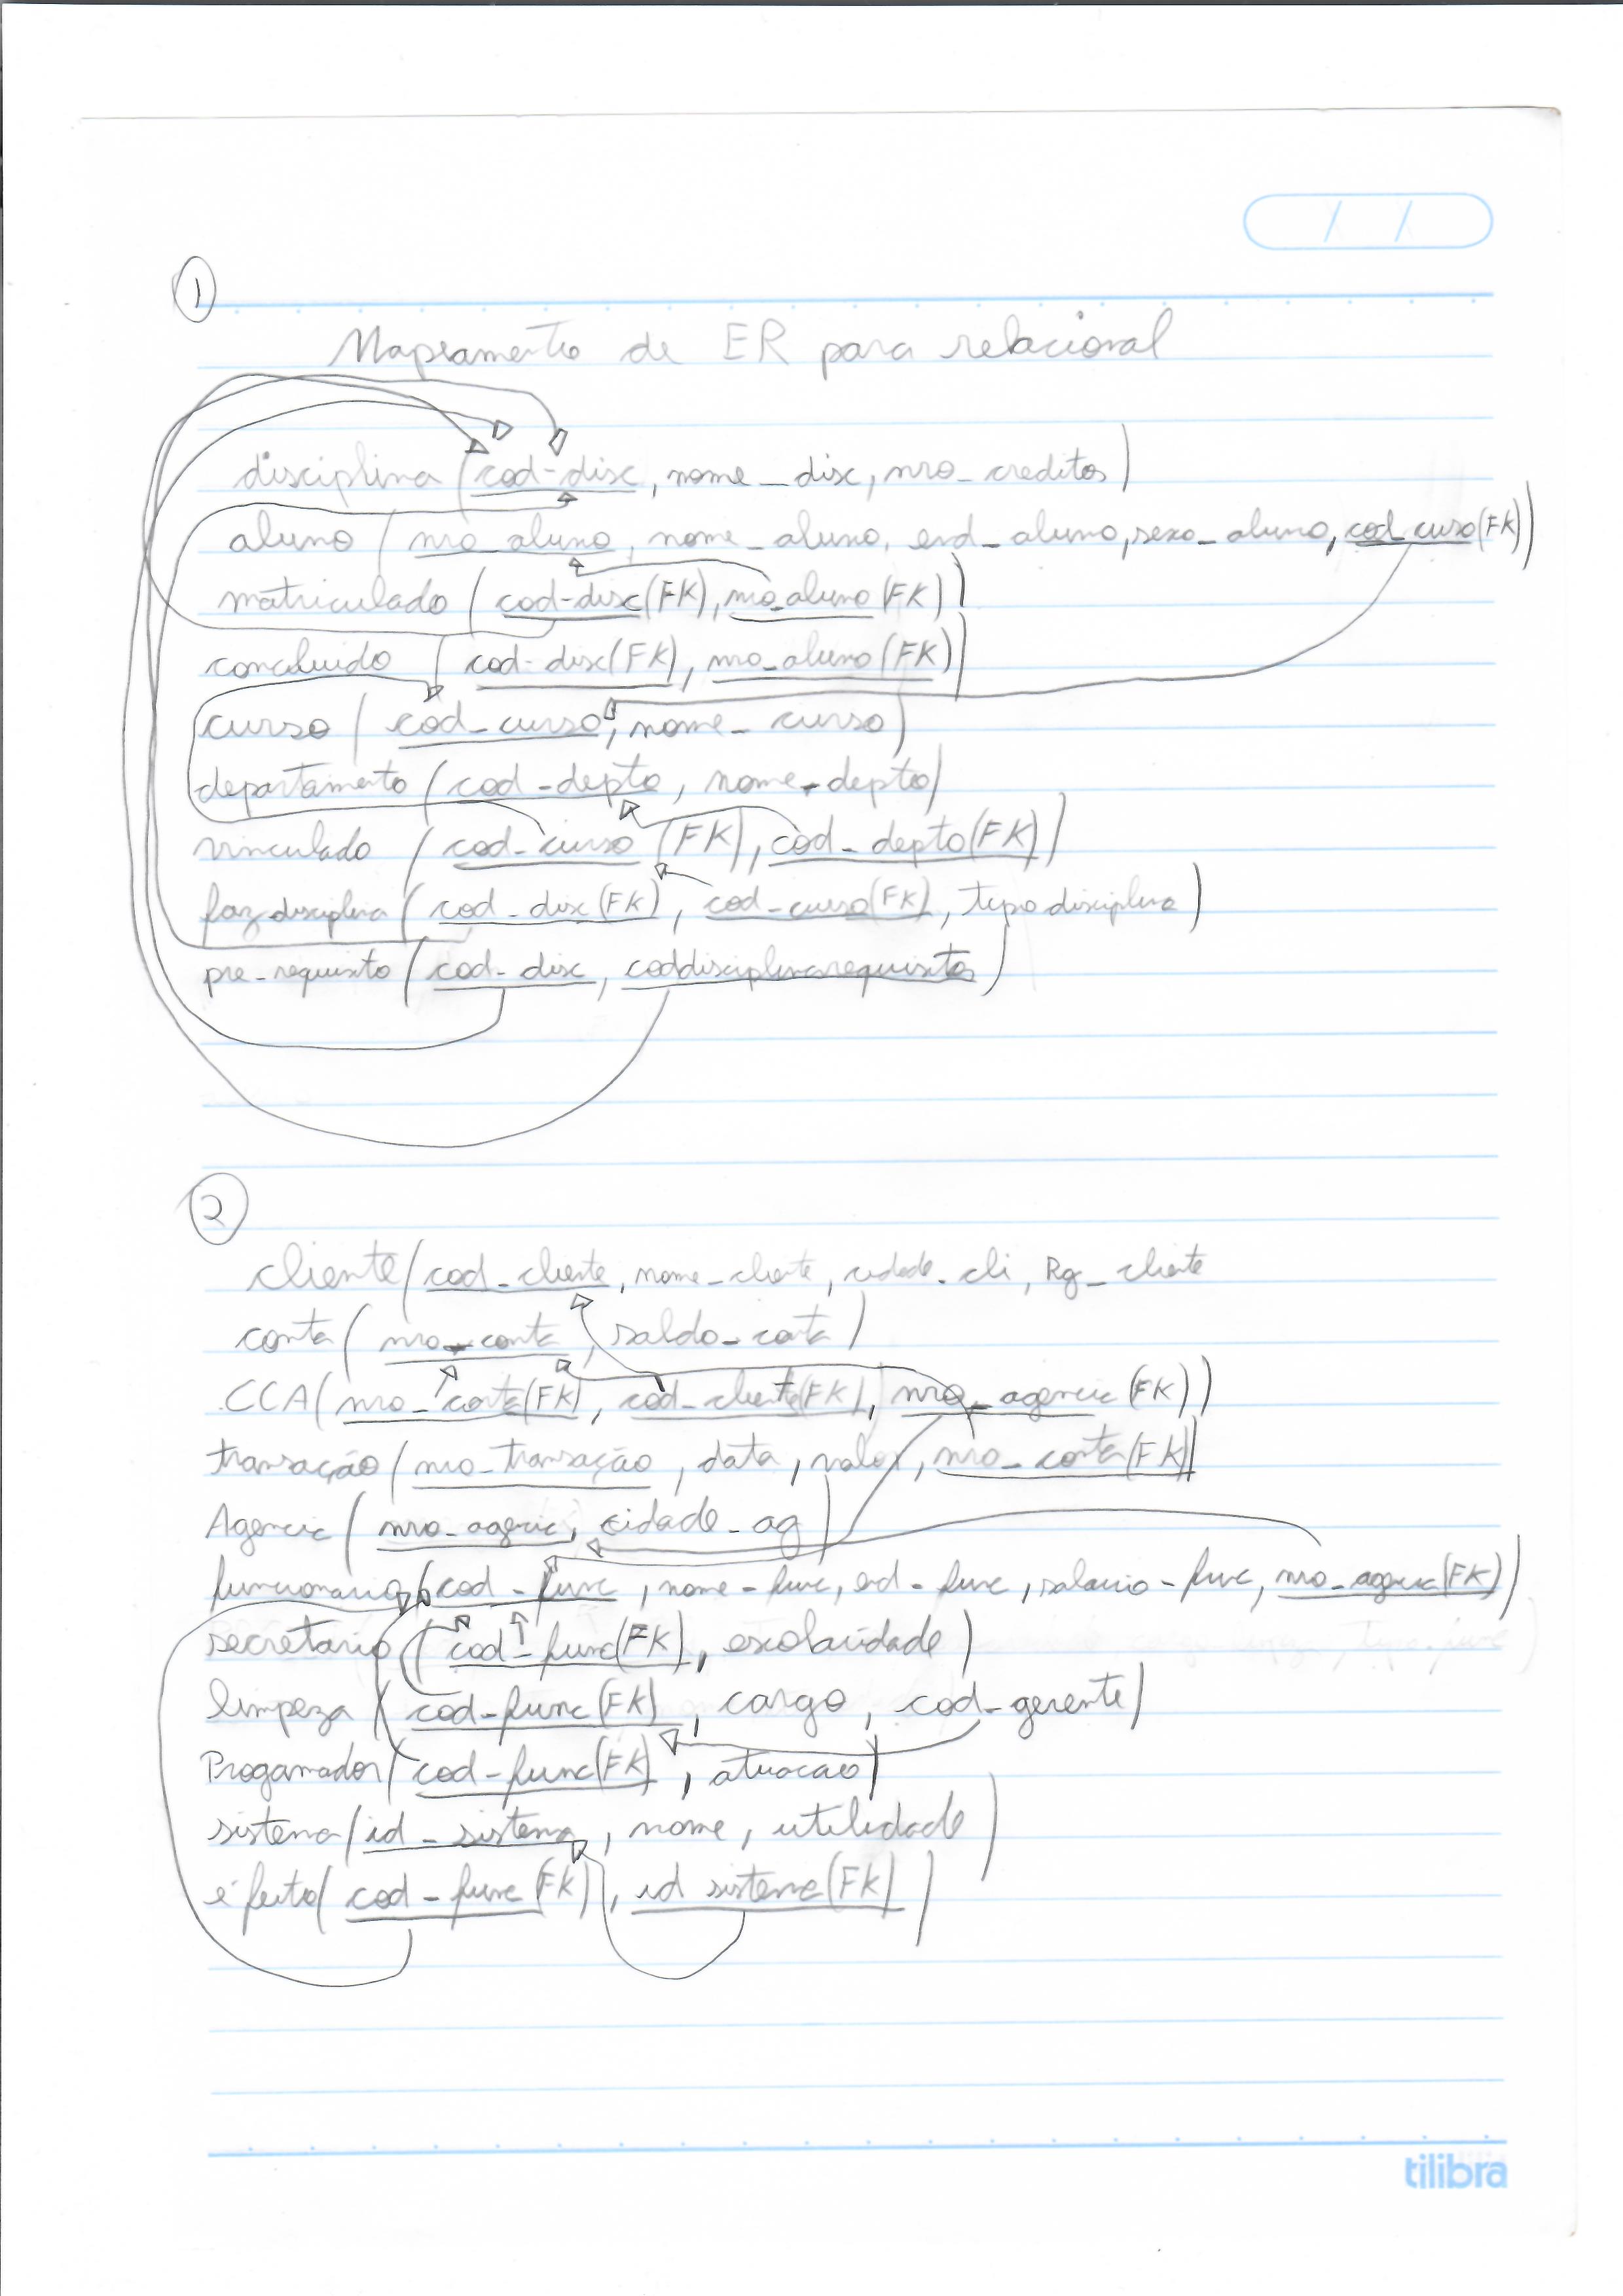 1
Mapeamento de ER para relacional
disciplina (cod-disc, nome_disc, nro_creditos)
aluno (nro_aluno, nome_aluno, end_aluno, sexo_aluno, cod_curso(FK))
matriculado (cod-disc(FK), nro_aluno(FK))
concluido (cod-disc(FK), nro_aluno(FK))
curso (cod_curso, nome_curso)
departamento (cod_depto, nome_depto)
vinculado (cod_curso (FK), cod_depto(FK))
faz disciplina (cod_disc(FK), cod_curso(FK), tipo disciplina)
pre_requisito (cod_disc, coddisciplinarequisitos)
2
cliente (cod_cliente, nome_cliente, cidade_cli, Rg_cliente
conta (nro_conta, saldo_conta)
CCA (nro_conta(FK), cod_cliente(FK), nro_agencia(FK))
transação (nro_transação, data, valor, nro_conta(FK))
Agencia (nro_agencia, cidade_ag)
funcionario (cod_func, nome_func, end_func, salario_func, nro_agencia(FK))
secretario (cod_func(FK), escolaridade)
limpeza (cod_func(FK), cargo, cod_gerente)
Progamador (cod_func(FK), atuacao)
sistema (id_sistema, nome, utilidade)
é feito (cod_func(FK), id sistema(FK))
tilibra